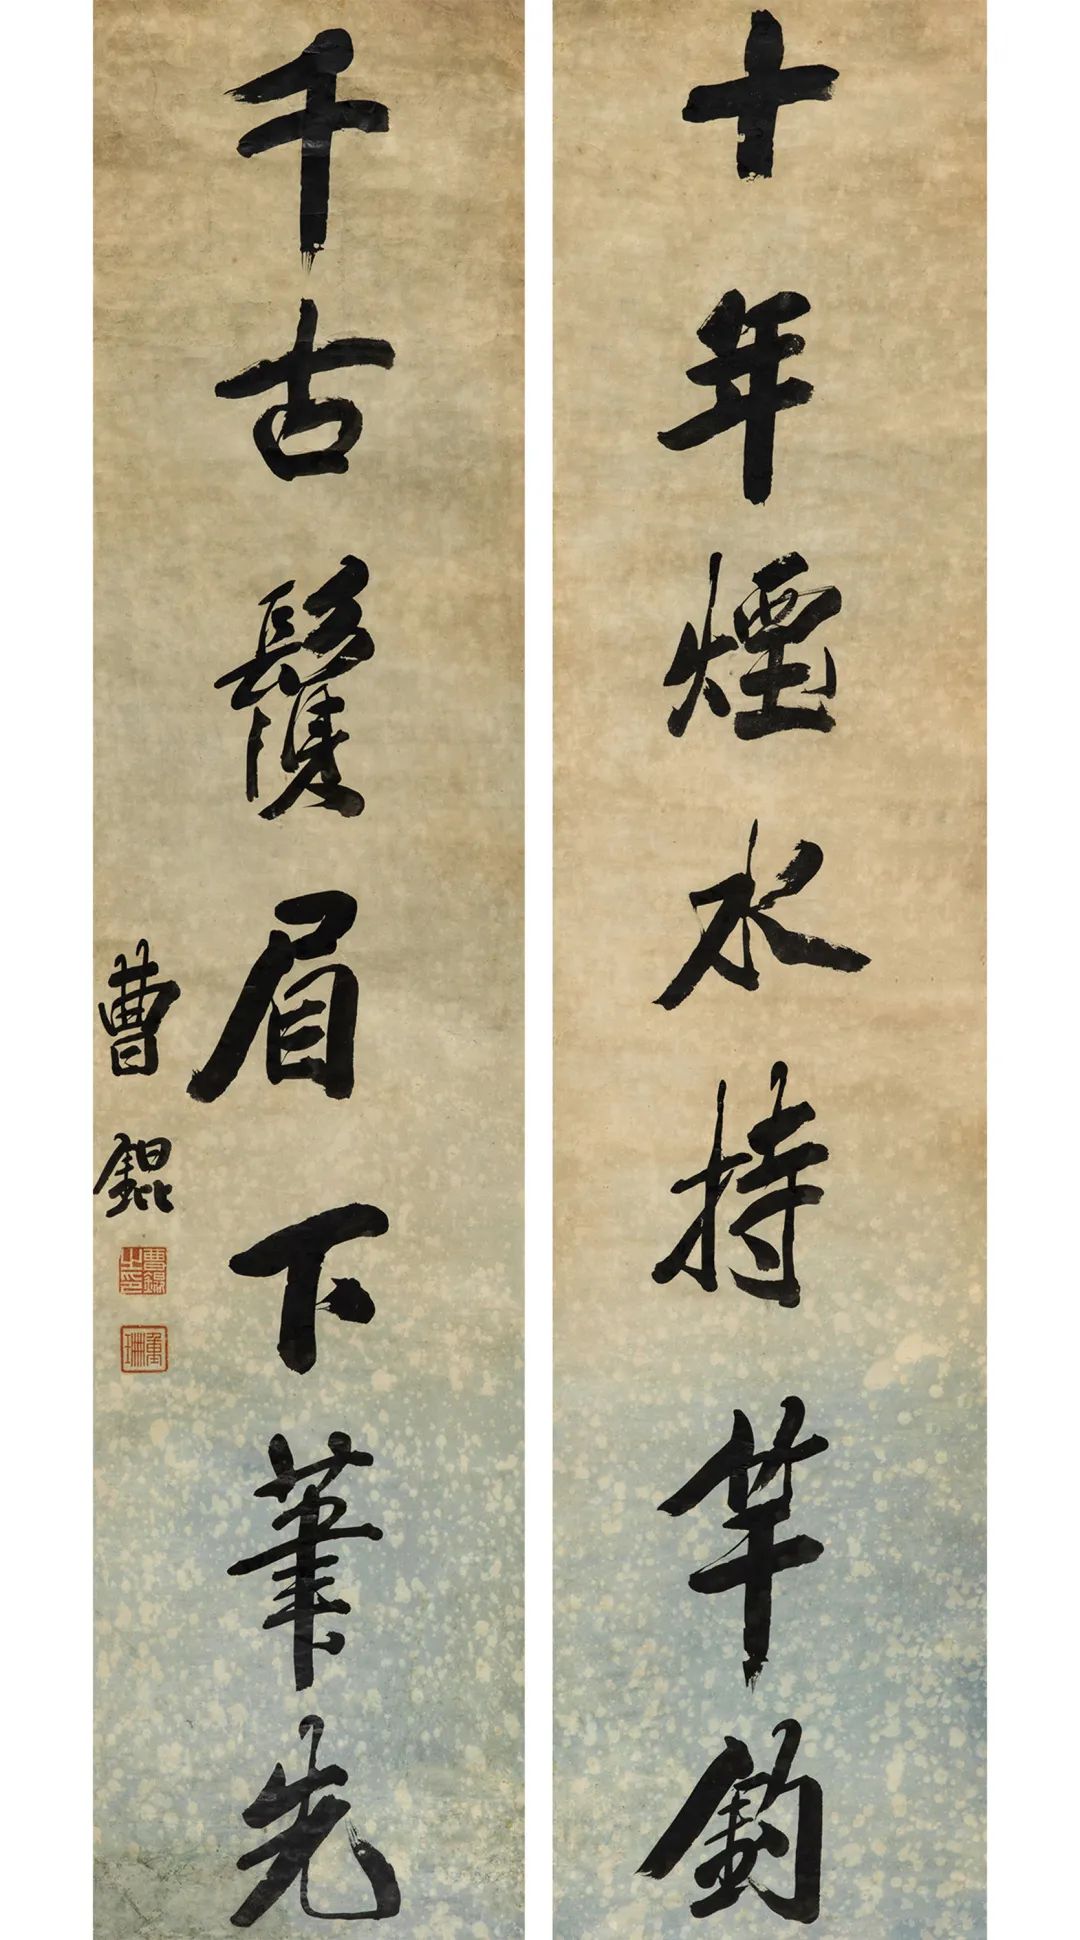 十年煙水持竿釣
千古鬚眉下筆先
曹錕
曹錕之印